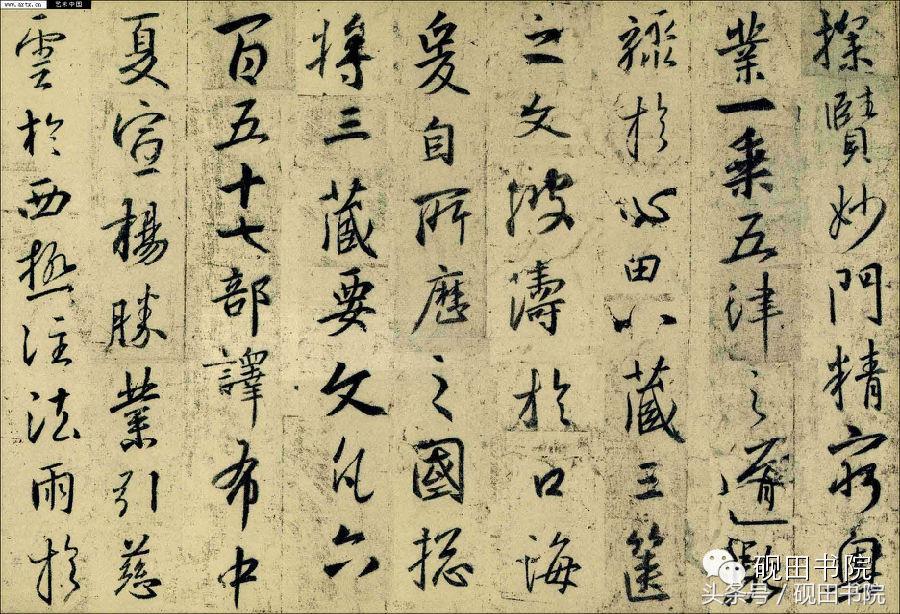 www.artx.cn 艺术中国
探賾妙門精窮奧
業一乘五律之道馳
驟於心田八藏三篋
之文波濤於口海
爰自所歷之國揔
將三藏要文凡六
百五十七部譯布中
夏宣楊勝業引慈
雲於西極注法雨於
砚田书院
头条号／砚田书院